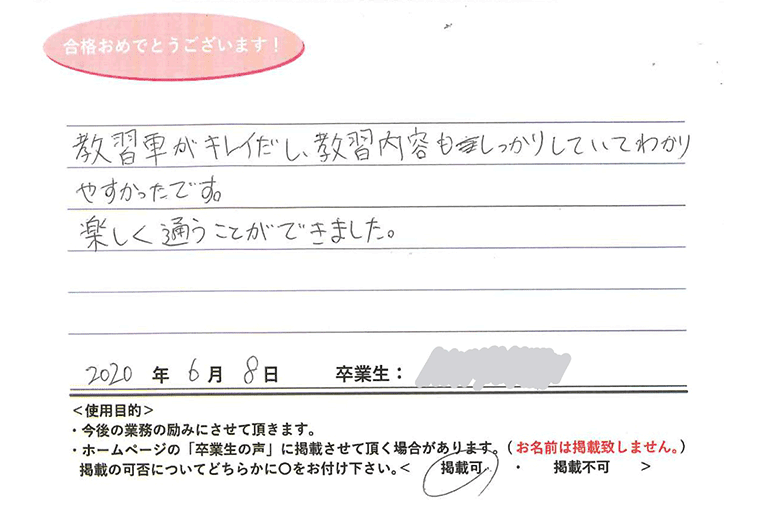 合格おめでとうございます！
教習車がキレイだし、教習内容もしっかりしていてわかり
やすかったです。
楽しく通うことができました。
2020 年 6 月 8 日 卒業生：
＜使用目的＞
・今後の業務の励みにさせて頂きます。
・ホームページの「卒業生の声」に掲載させて頂く場合があります。（お名前は掲載致しません。）
掲載の可否についてどちらかに○をお付け下さい。＜ 掲載可 ・ 掲載不可 ＞